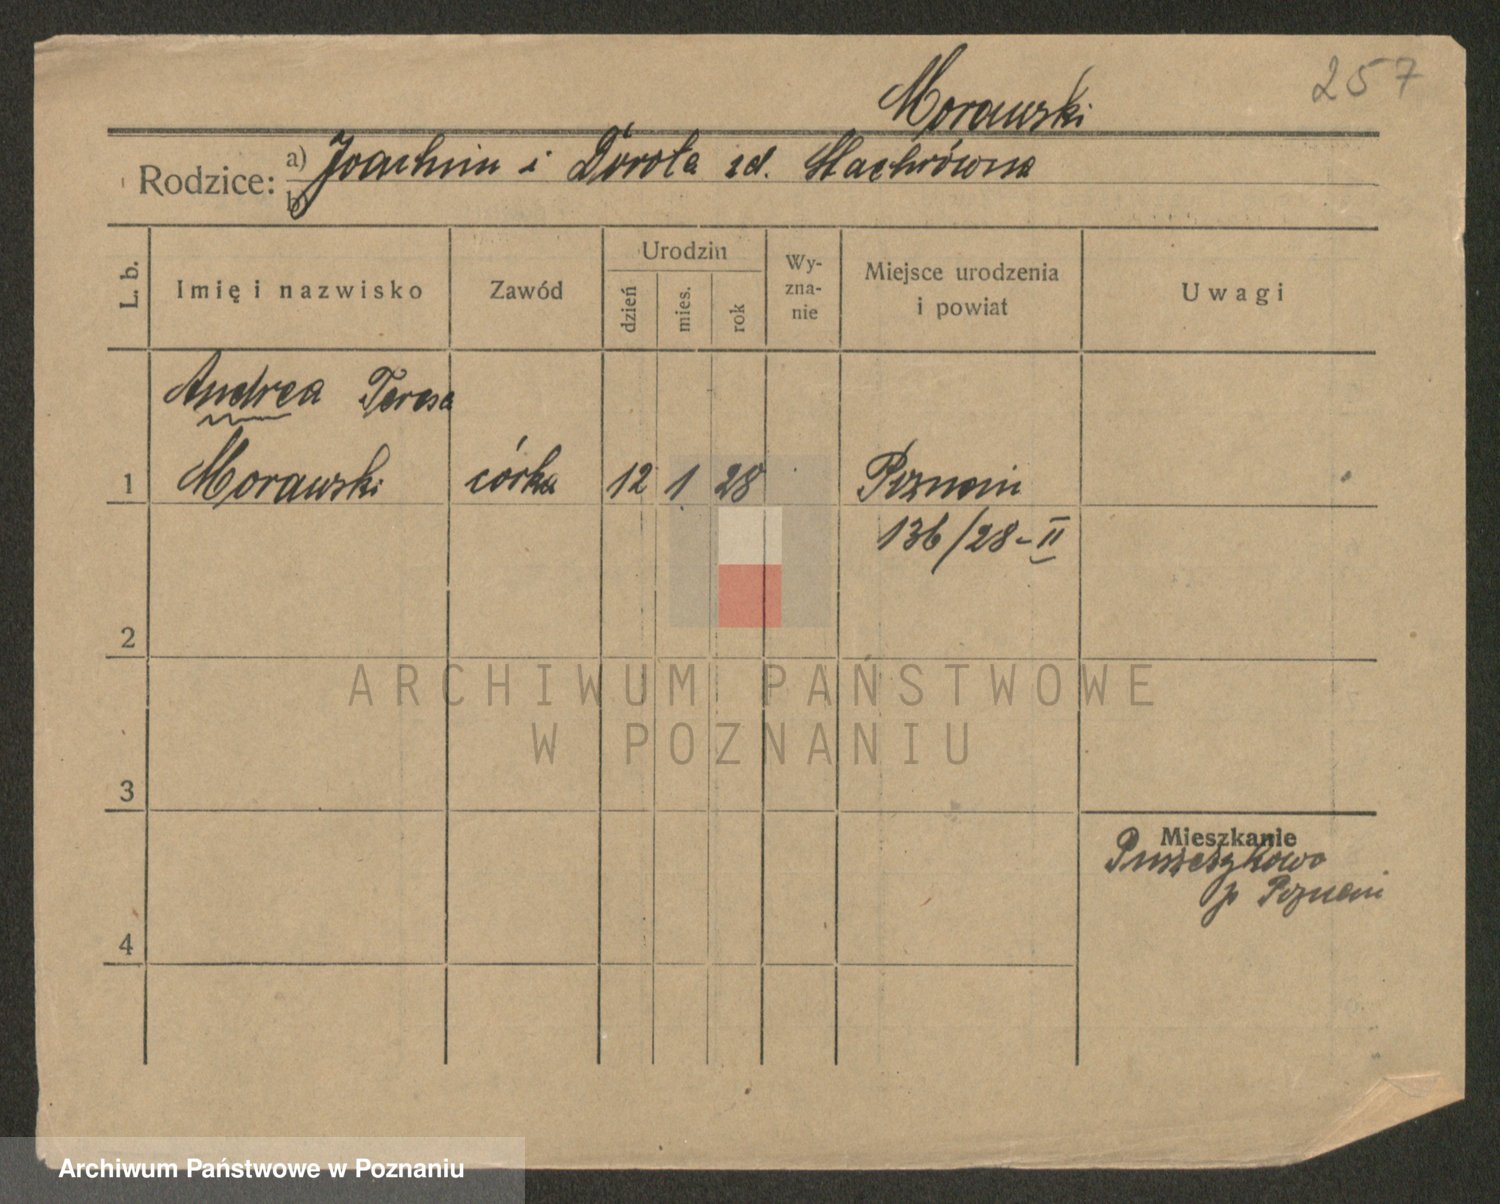 257
Morawski
Rodzice: a) Joachim i Dorota zd. Stachrówna
b)
L. b.
Imię i nazwisko
Zawód
Urodzin
dzień
mies.
rok
Wy-
zna-
nie
Miejsce urodzenia
i powiat
Uwagi
Andrea Teresa
1 Morawski córka 12 1 28 Poznań
136/28-II
2
ARCHIWUM PAŃSTWOWE
W POZNANIU
3
Mieszkanie
Puszczykowo
p Poznań
4
Archiwum Państwowe w Poznaniu